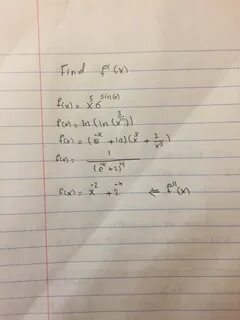 Find f'(x)
f(x) = x⁵ 6^sin(x)
f(x) = ln(ln(x^3/2))
f(x) = (e^-x + 10)(x³ + 2/x³)
f(x) = 1/(e^-x + 2)⁴
f(x) = x^-2 + 2^-x ⇐ f''(x)